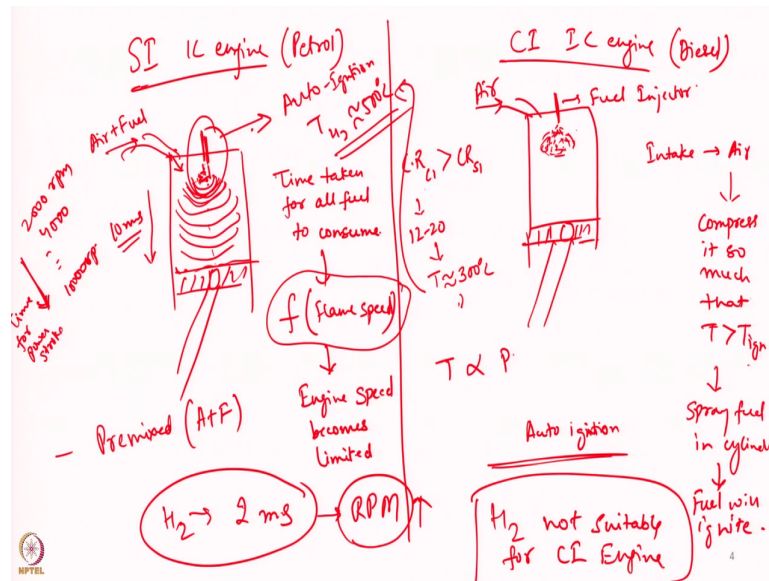 SI IC engine (Petrol)
Air+Fuel
Auto-Ignition
T H2 ≈ 500°C
2000 rpm
4000
=
10000 rpm
10 ms
time
for
power
stroke
Time taken
for all fuel
to consume
f (Flame speed)
Engine Speed
becomes
Limited
- Premixed (A+F)
H2 → 2 ms → RPM ↑
CI IC engine (Diesel)
Air
Fuel Injector
C.R CI > CR SI
↓
12-20
↓
T ≈ 300°C
T ∝ P
Intake → Air
↓
Compress
it so
much
that
T > Tign
↓
Spray fuel
in cylinder
↓
Fuel will
ignite.
Auto ignition
H2 not suitable
for CI Engine
NPTEL
4